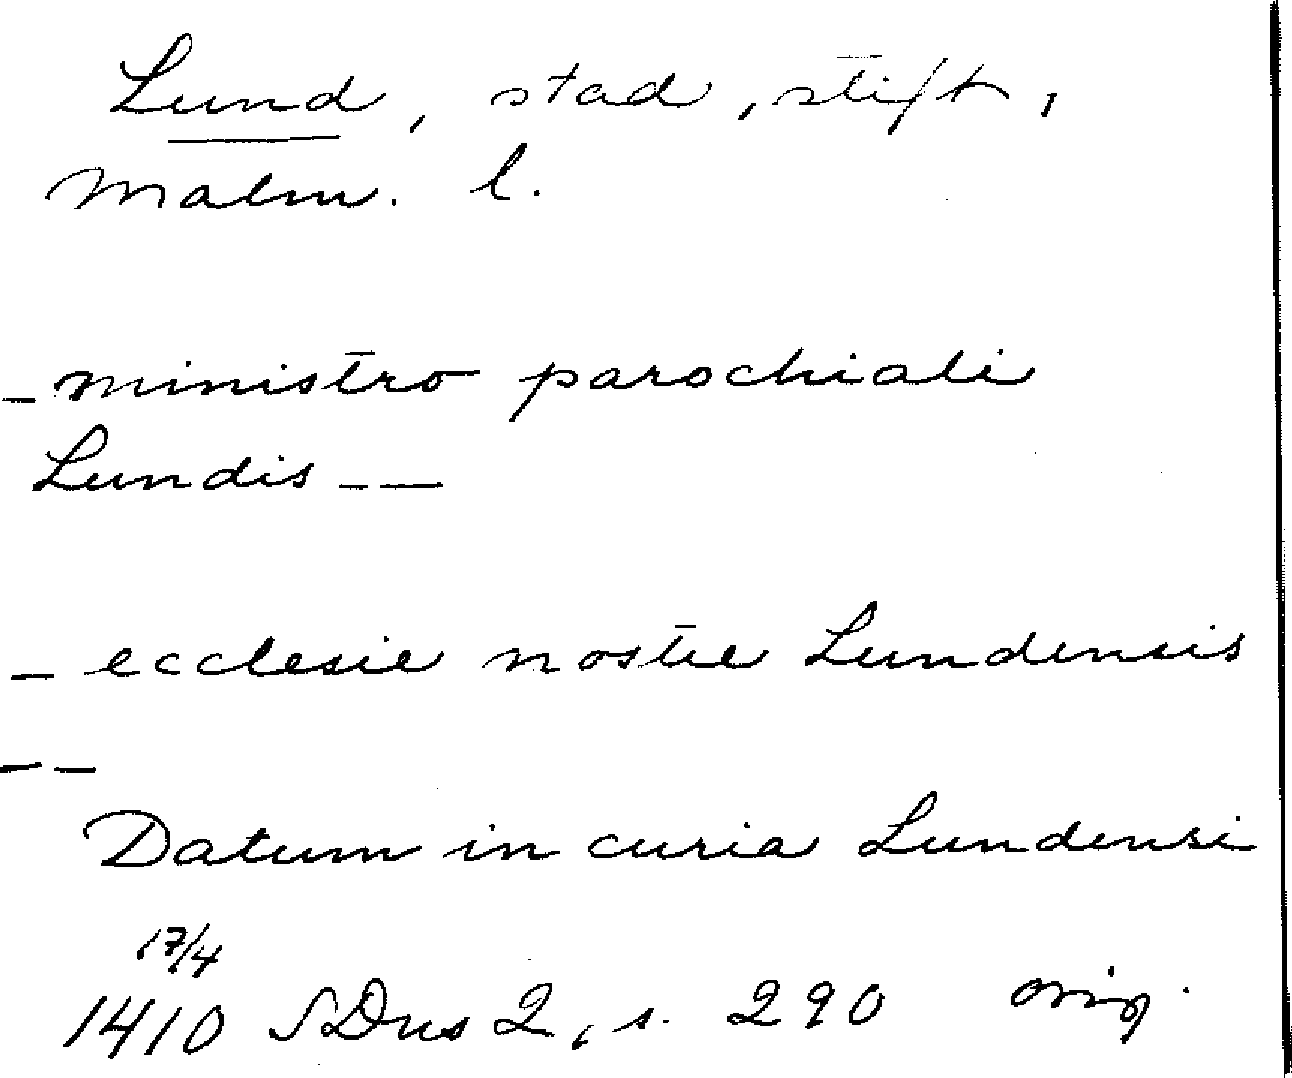 Lund, stad, stift,
Malm. l.
- ministro parochiali
Lundis - -
- ecclesie nostre Lundensis
- -
Datum in curia Lundensi
17/4
1410 SDns 2, s. 290 orig.